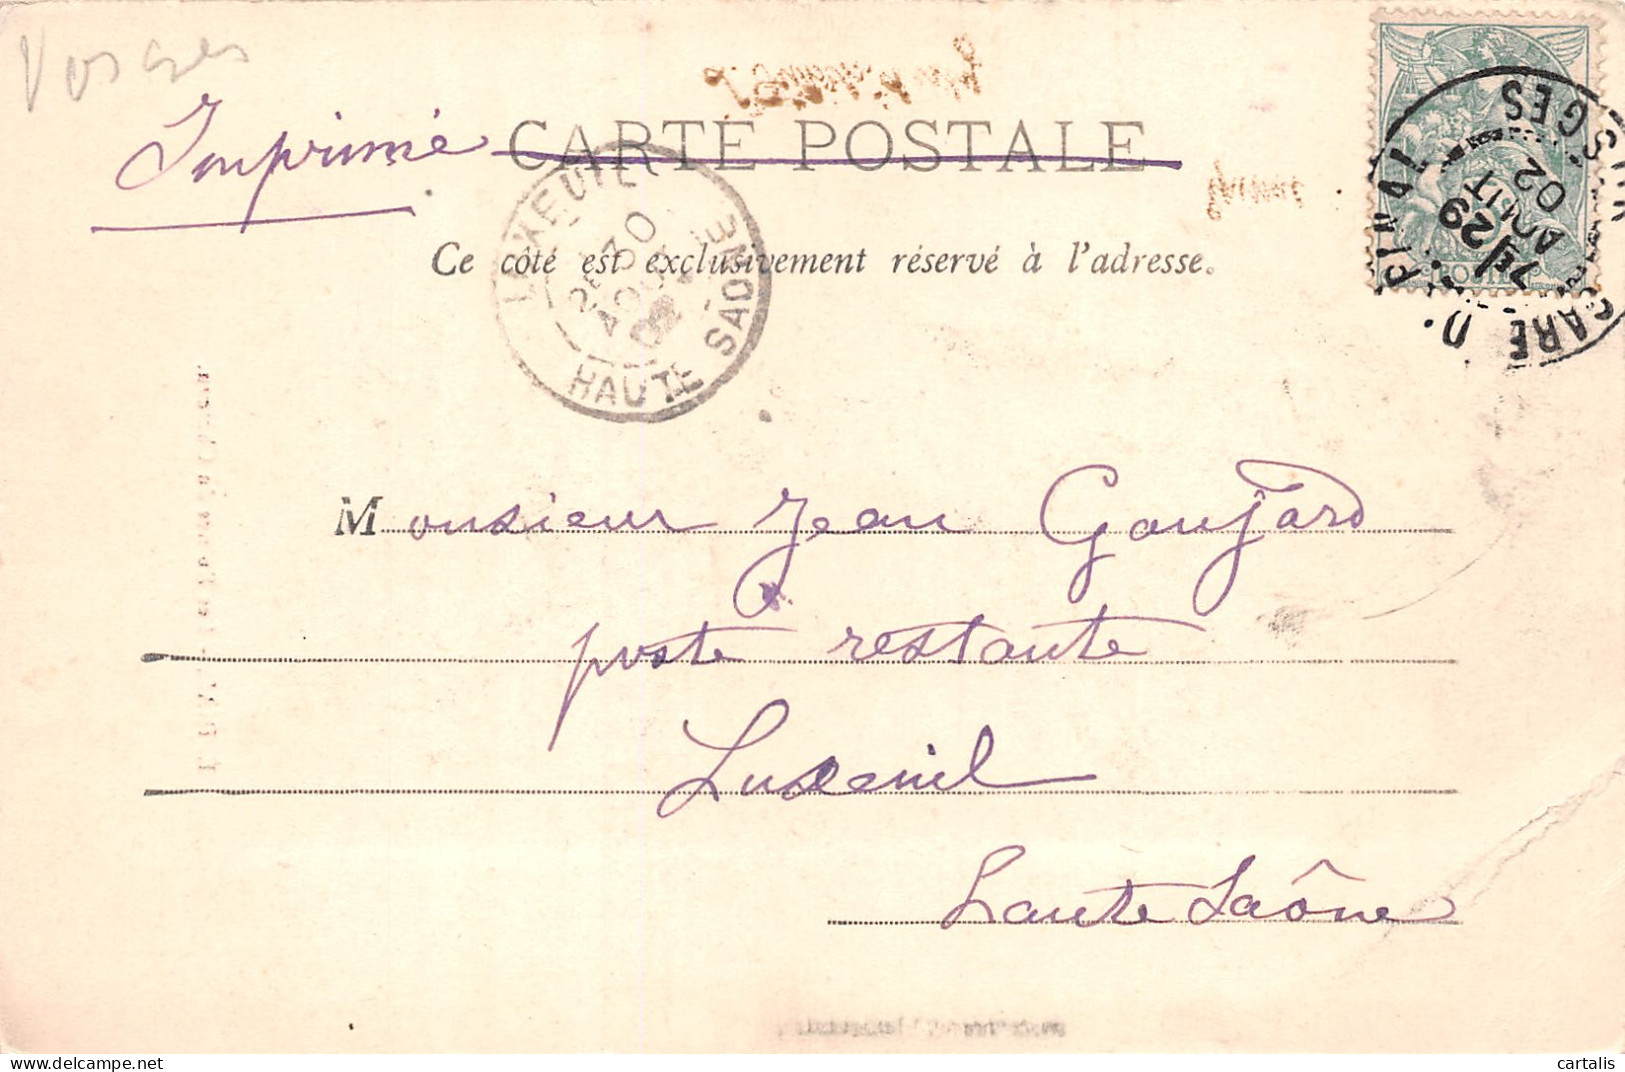 Vosges
Imprimé
CARTE POSTALE
Ce côté est exclusivement réservé à l'adresse.
LUXEUIL
2E 30
AOUT
02
HAUTE SAONE
GARE D'EPINAL
7E 29
AOUT
02
VOSGES
POSTES
Monsieur Jean Goujard
poste restante
Luxeuil
Haute Saône
www.delcampe.net
cartalis